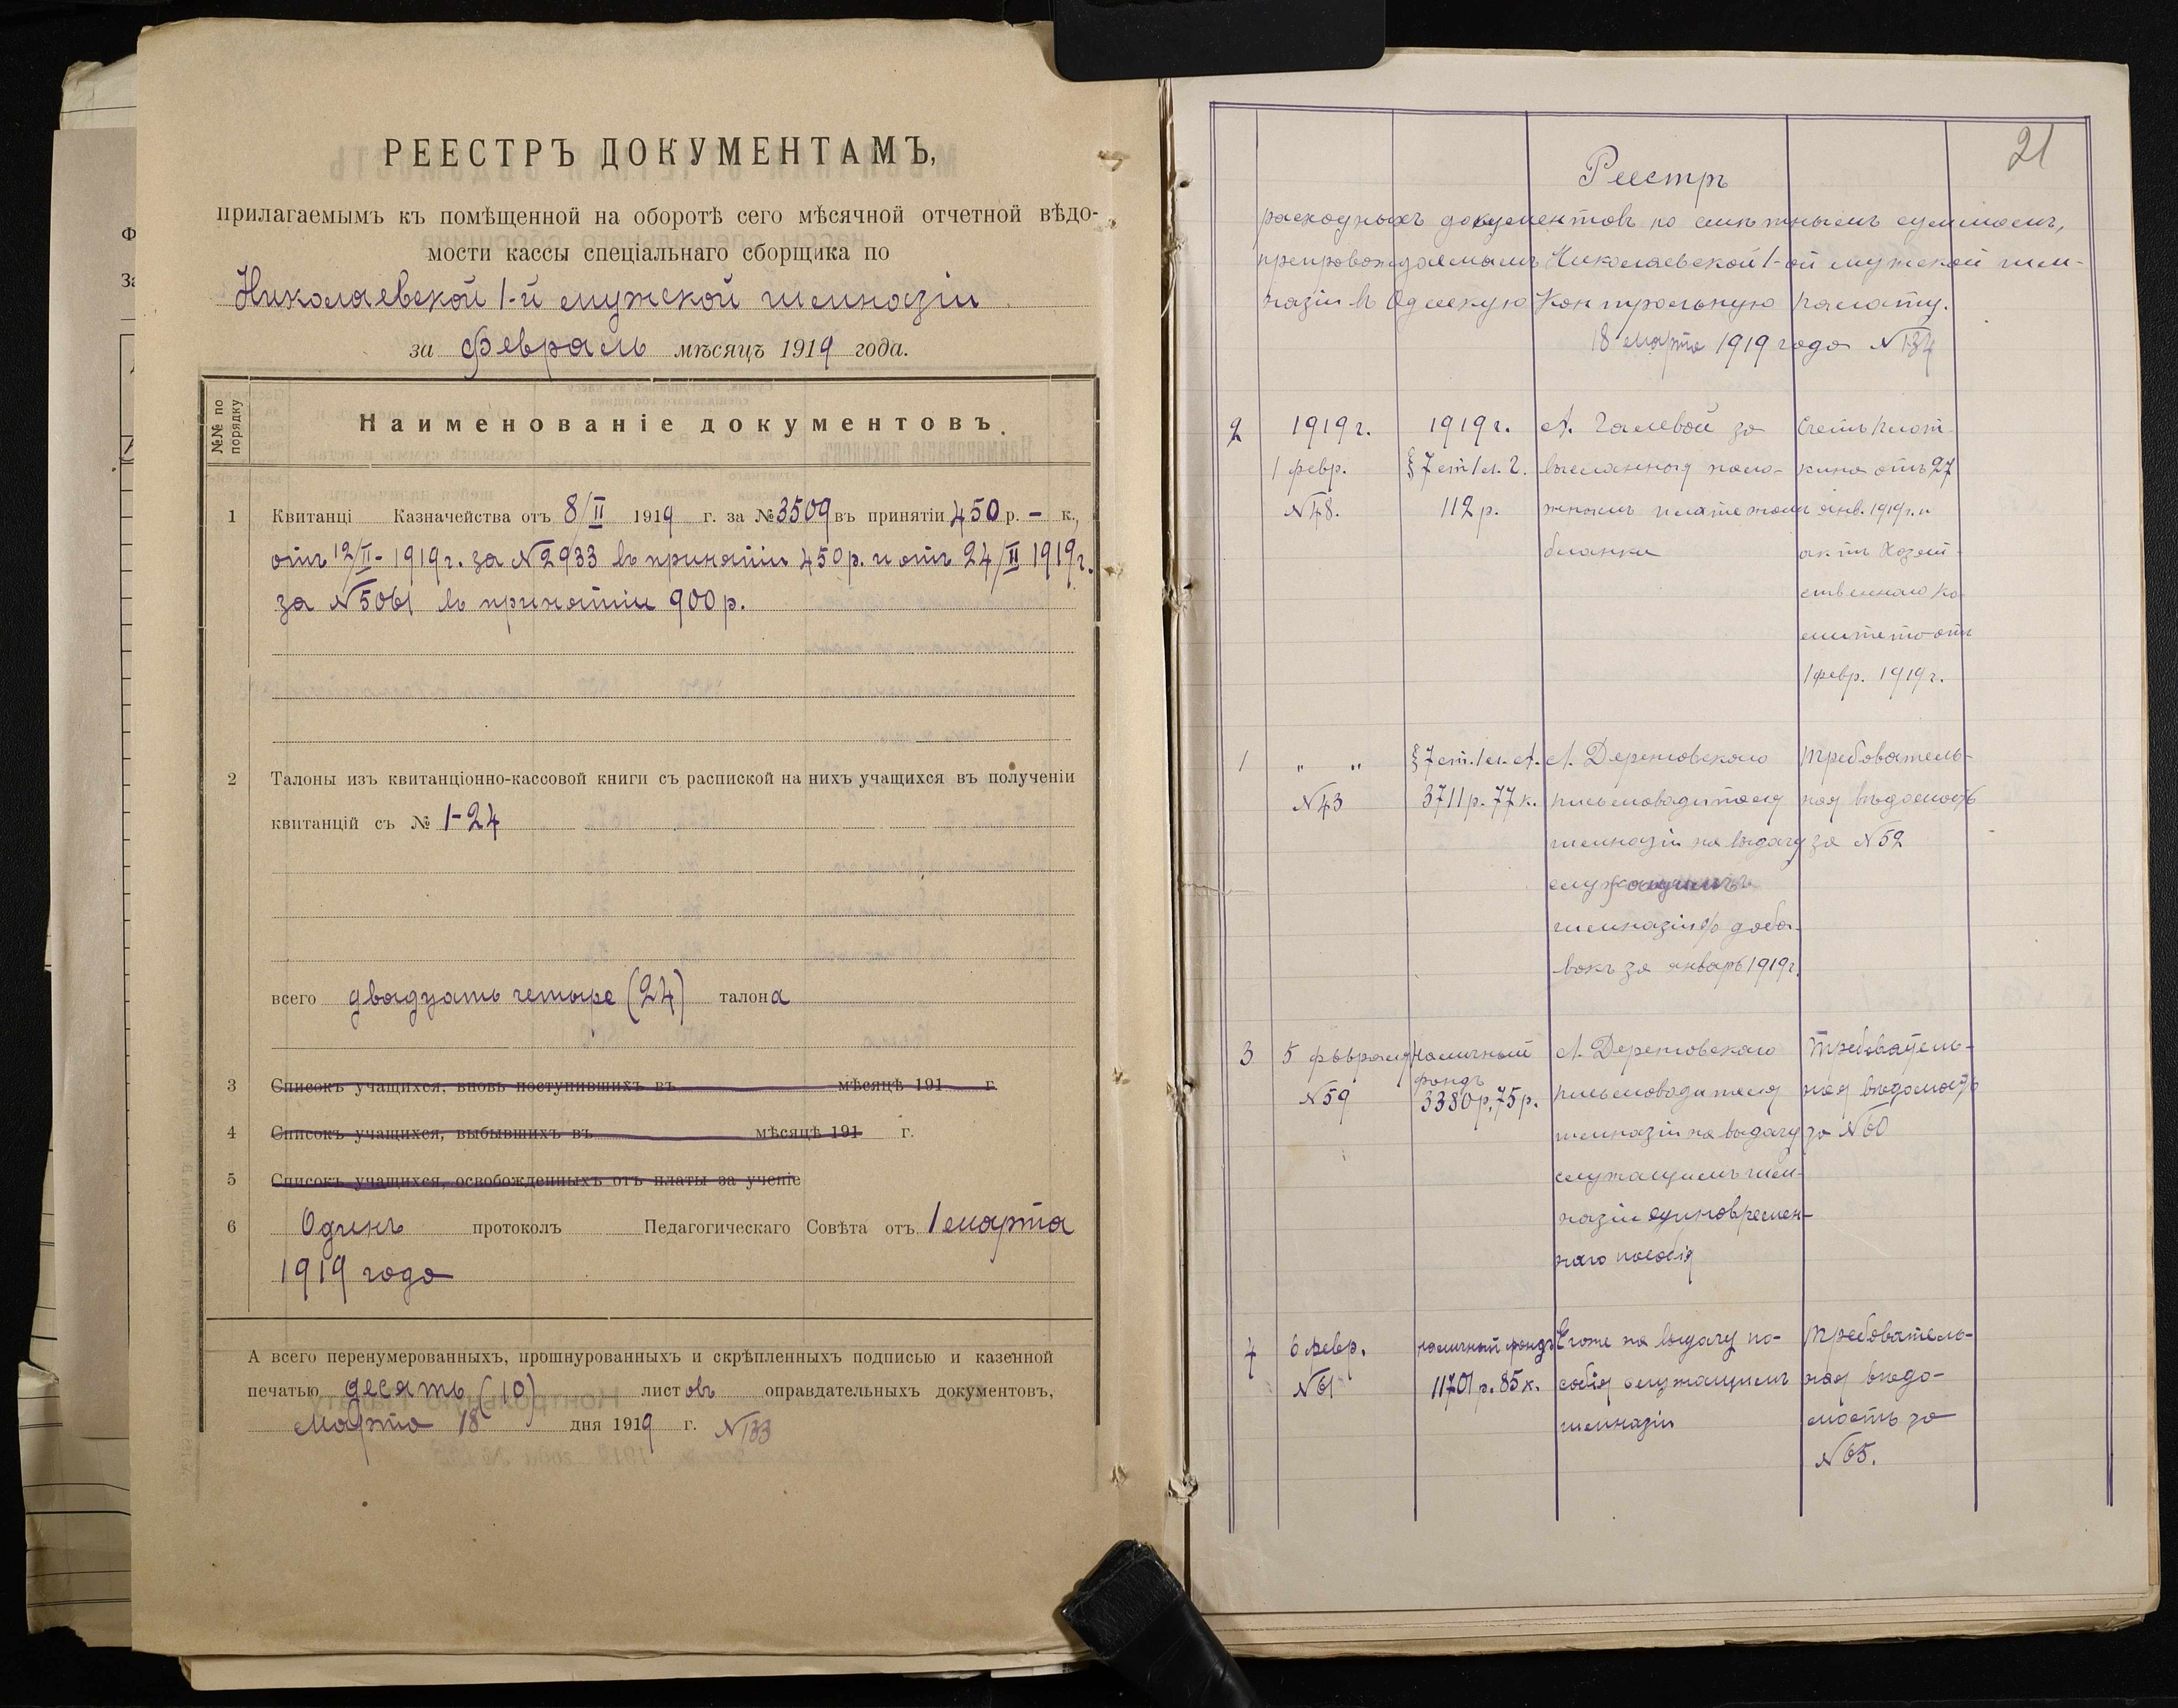 РЕЕСТРЪ ДОКУМЕНТАМЪ,
прилагаемымъ къ помѣщенной на оборотѣ сего мѣсячной отчетной вѣдо-
мости кассы спеціальнаго сборщика по
Николаевской 1-й мужской гимназіи
за февраль мѣсяцъ 1919 года.
№№ по порядку
Наименованіе документовъ.
1 Квитанці Казначейства отъ 8/II 1919 г. за № 3509 въ принятіи 450 р. – к.,
отъ 12/II - 1919 г. за N 2933 въ принятіи 450 р. и отъ 24/II 1919 г.
за N 5061 въ принятіи 900 р.
2 Талоны изъ квитанціонно-кассовой книги съ распиской на нихъ учащихся въ полученіи
квитанцій съ № 1-24
всего двадцать четыре (24) талона
3 Списокъ учащихся, вновь поступившихъ въ мѣсяцѣ 191 г.
4 Списокъ учащихся, выбывшихъ въ мѣсяцѣ 191 г.
5 Списокъ учащихся, освобожденныхъ отъ платы за ученіе
6 Одинъ протоколъ Педагогическаго Совѣта отъ 1 марта
1919 года
А всего перенумерованныхъ, прошнурованныхъ и скрѣпленныхъ подписью и казенной
печатью десять (10) листовъ оправдательныхъ документовъ,
Марта 18 дня 1919 г. N 133
21
Реестръ
расходныхъ документовъ по смѣтнымъ суммамъ,
препровождаемымъ Николаевской 1-ой мужской гим-
назіи въ Одесскую Контрольную палату.
18 марта 1919 года N 134
2 1919 г. 1919 г. А. за Счетъ
1 февр. § 7 ст. 1 л. г. высланныя нало- кина отъ 27
N 48. 112 р. женымъ платежомъ янв. 1919 г. и
бланки актъ Хозяй-
ственнаго Ко-
митета отъ
1 февр. 1919 г.
1 " " § 7 ст. 1 л. А. А. Требователь-
N 43 3711 р. 77 к. письмоводителя ная вѣдомость
гимназіи на выдачу за N 52
служащимъ
гимназіи % доба-
вокъ за январь 1919 г.
3 5 февраля наличный А. Требователь-
фондъ
N 59 3380 р. 75 р. письмоводителя ная вѣдомость
гимназіи на выдачу за N 60
служащимъ гим-
назіи единовремен-
наго пособія
4 6 февр. наличный фондъ Егоже на выдачу по- Требователь-
N 61 11701 р. 85 к. собія служащимъ ная вѣдо-
гимназіи мость за
N 65.